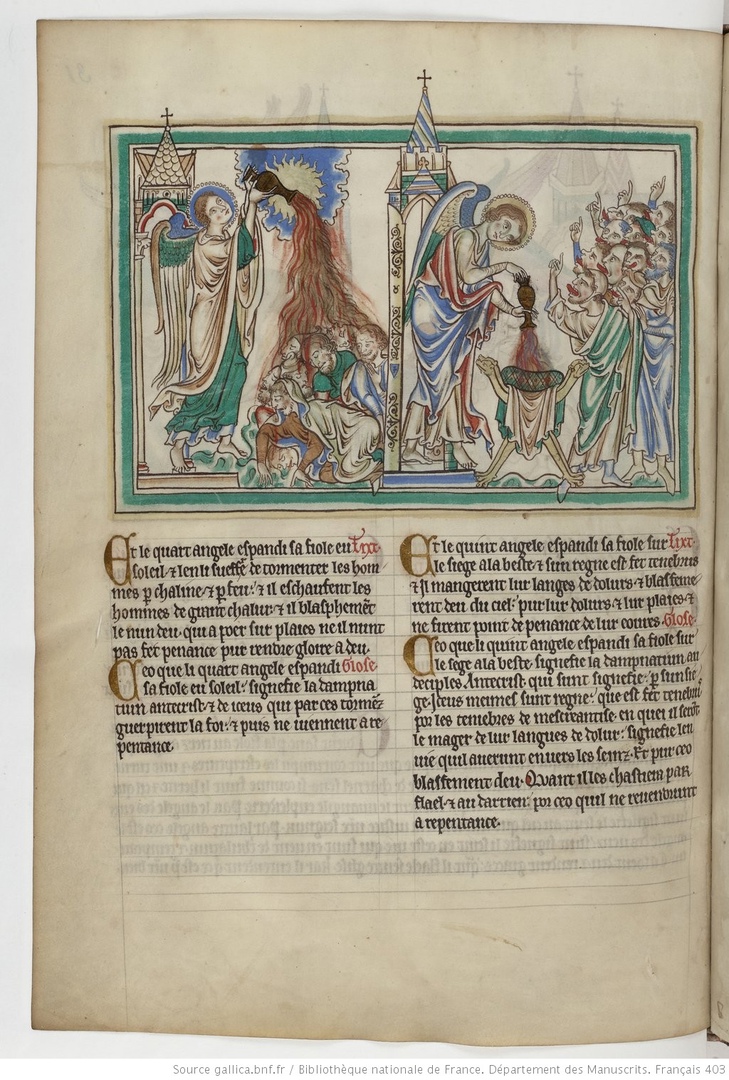 Et le quart angele espandi sa fiole eu Tixt.
soleil. ⁊ len li suffre de tormenter les hom-
mes p chaline. ⁊ p feu: ⁊ il eschaufent les
hommes de grant chalur. ⁊ il blasphemēt
le nun deu. qui a poer sur plaies ne il nunt
pas fet penance pur rendre gloire a deu.
Ceo que li quart angele espandi Glose.
sa fiole eu soleil: signefie la dampna
tiun antecrist. ⁊ de iceus qui par ces tormēz
guerpirent la foi. ⁊ puis ne uiennent a re-
pentance.
Et le quint angele espandi sa fiole sur Tixt.
le siege a la beste. ⁊ sun regne est fet tenebrus
⁊ il mangerent lur langes de dolurs. ⁊ blasfeme-
rent deu du ciel. pur lur dolurs ⁊ lur plaies. ⁊
ne firent point de penance de lur eoures. Glose.
Ceo que li quint angele espandi sa fiole sur
le sege a la beste. signefie la dampnatiun au
deciples Antecrist. qui sunt signefie p sun sie-
ge. Iceus meimes sunt regne. que est fet tenebrus
por les tenebres de mescreantise. en quei il serōt
le manger de lur langues de dolur. signefie len-
uie quil auerunt enuers les seinz. Et pur ceo
blasfement deu. Quant il les chastien par
flael. ⁊ au darrien: por ceo quil ne reuendrunt
a repentance.
Source gallica.bnf.fr / Bibliothèque nationale de France. Département des Manuscrits. Français 403